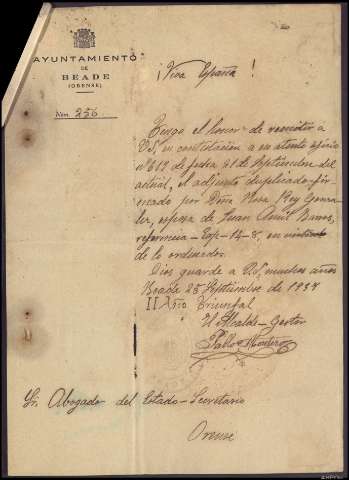 AYUNTAMIENTO
DE
BEADE
(ORENSE)
Núm. 256
¡Viva España!
Tengo el honor de remitir a
V.S, en contestación a su atento oficio
nº 613 de fecha 21 de Septiembre del
actual, el adjunto duplicado fir-
mado por Doña Rosa Rey Gonza-
lez, esposa de Juan
referencia - Exp - 14-8, en
de lo ordenado.
Dios guarde a V.S. muchos años
Beade 25 Septiembre de 1937
II Año Triunfal
El Alcalde-Gestor
Pablo
Sr. Abogado del Estado-Secretario
Orense